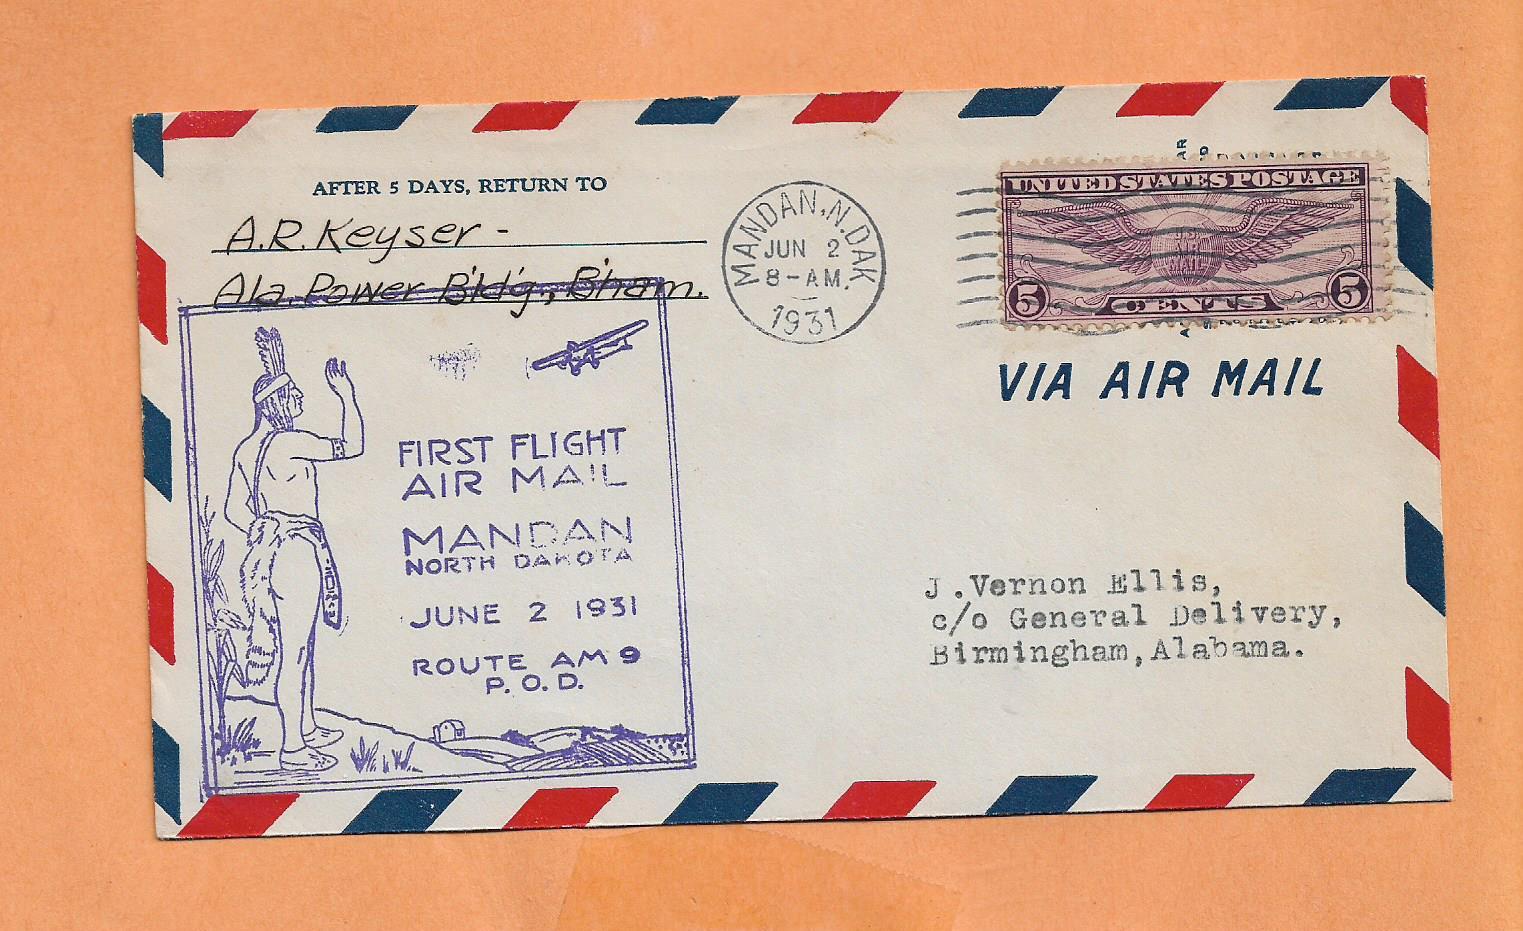 AFTER 5 DAYS, RETURN TO
A.R. Keyser -
Ala. Power Bldg., B'ham.
MANDAN, N. DAK
JUN 2
8-AM.
1931
UNITED STATES POSTAGE
U.S.
AIR
MAIL
5 CENTS 5
VIA AIR MAIL
FIRST FLIGHT
AIR MAIL
MANDAN
NORTH DAKOTA
JUNE 2 1931
ROUTE AM 9
P.O.D.
J. Vernon Ellis,
c/o General Delivery,
Birmingham, Alabama.